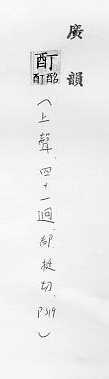 廣韻
酊
酩酊
(上聲.四十一迥.都挺切.P319)